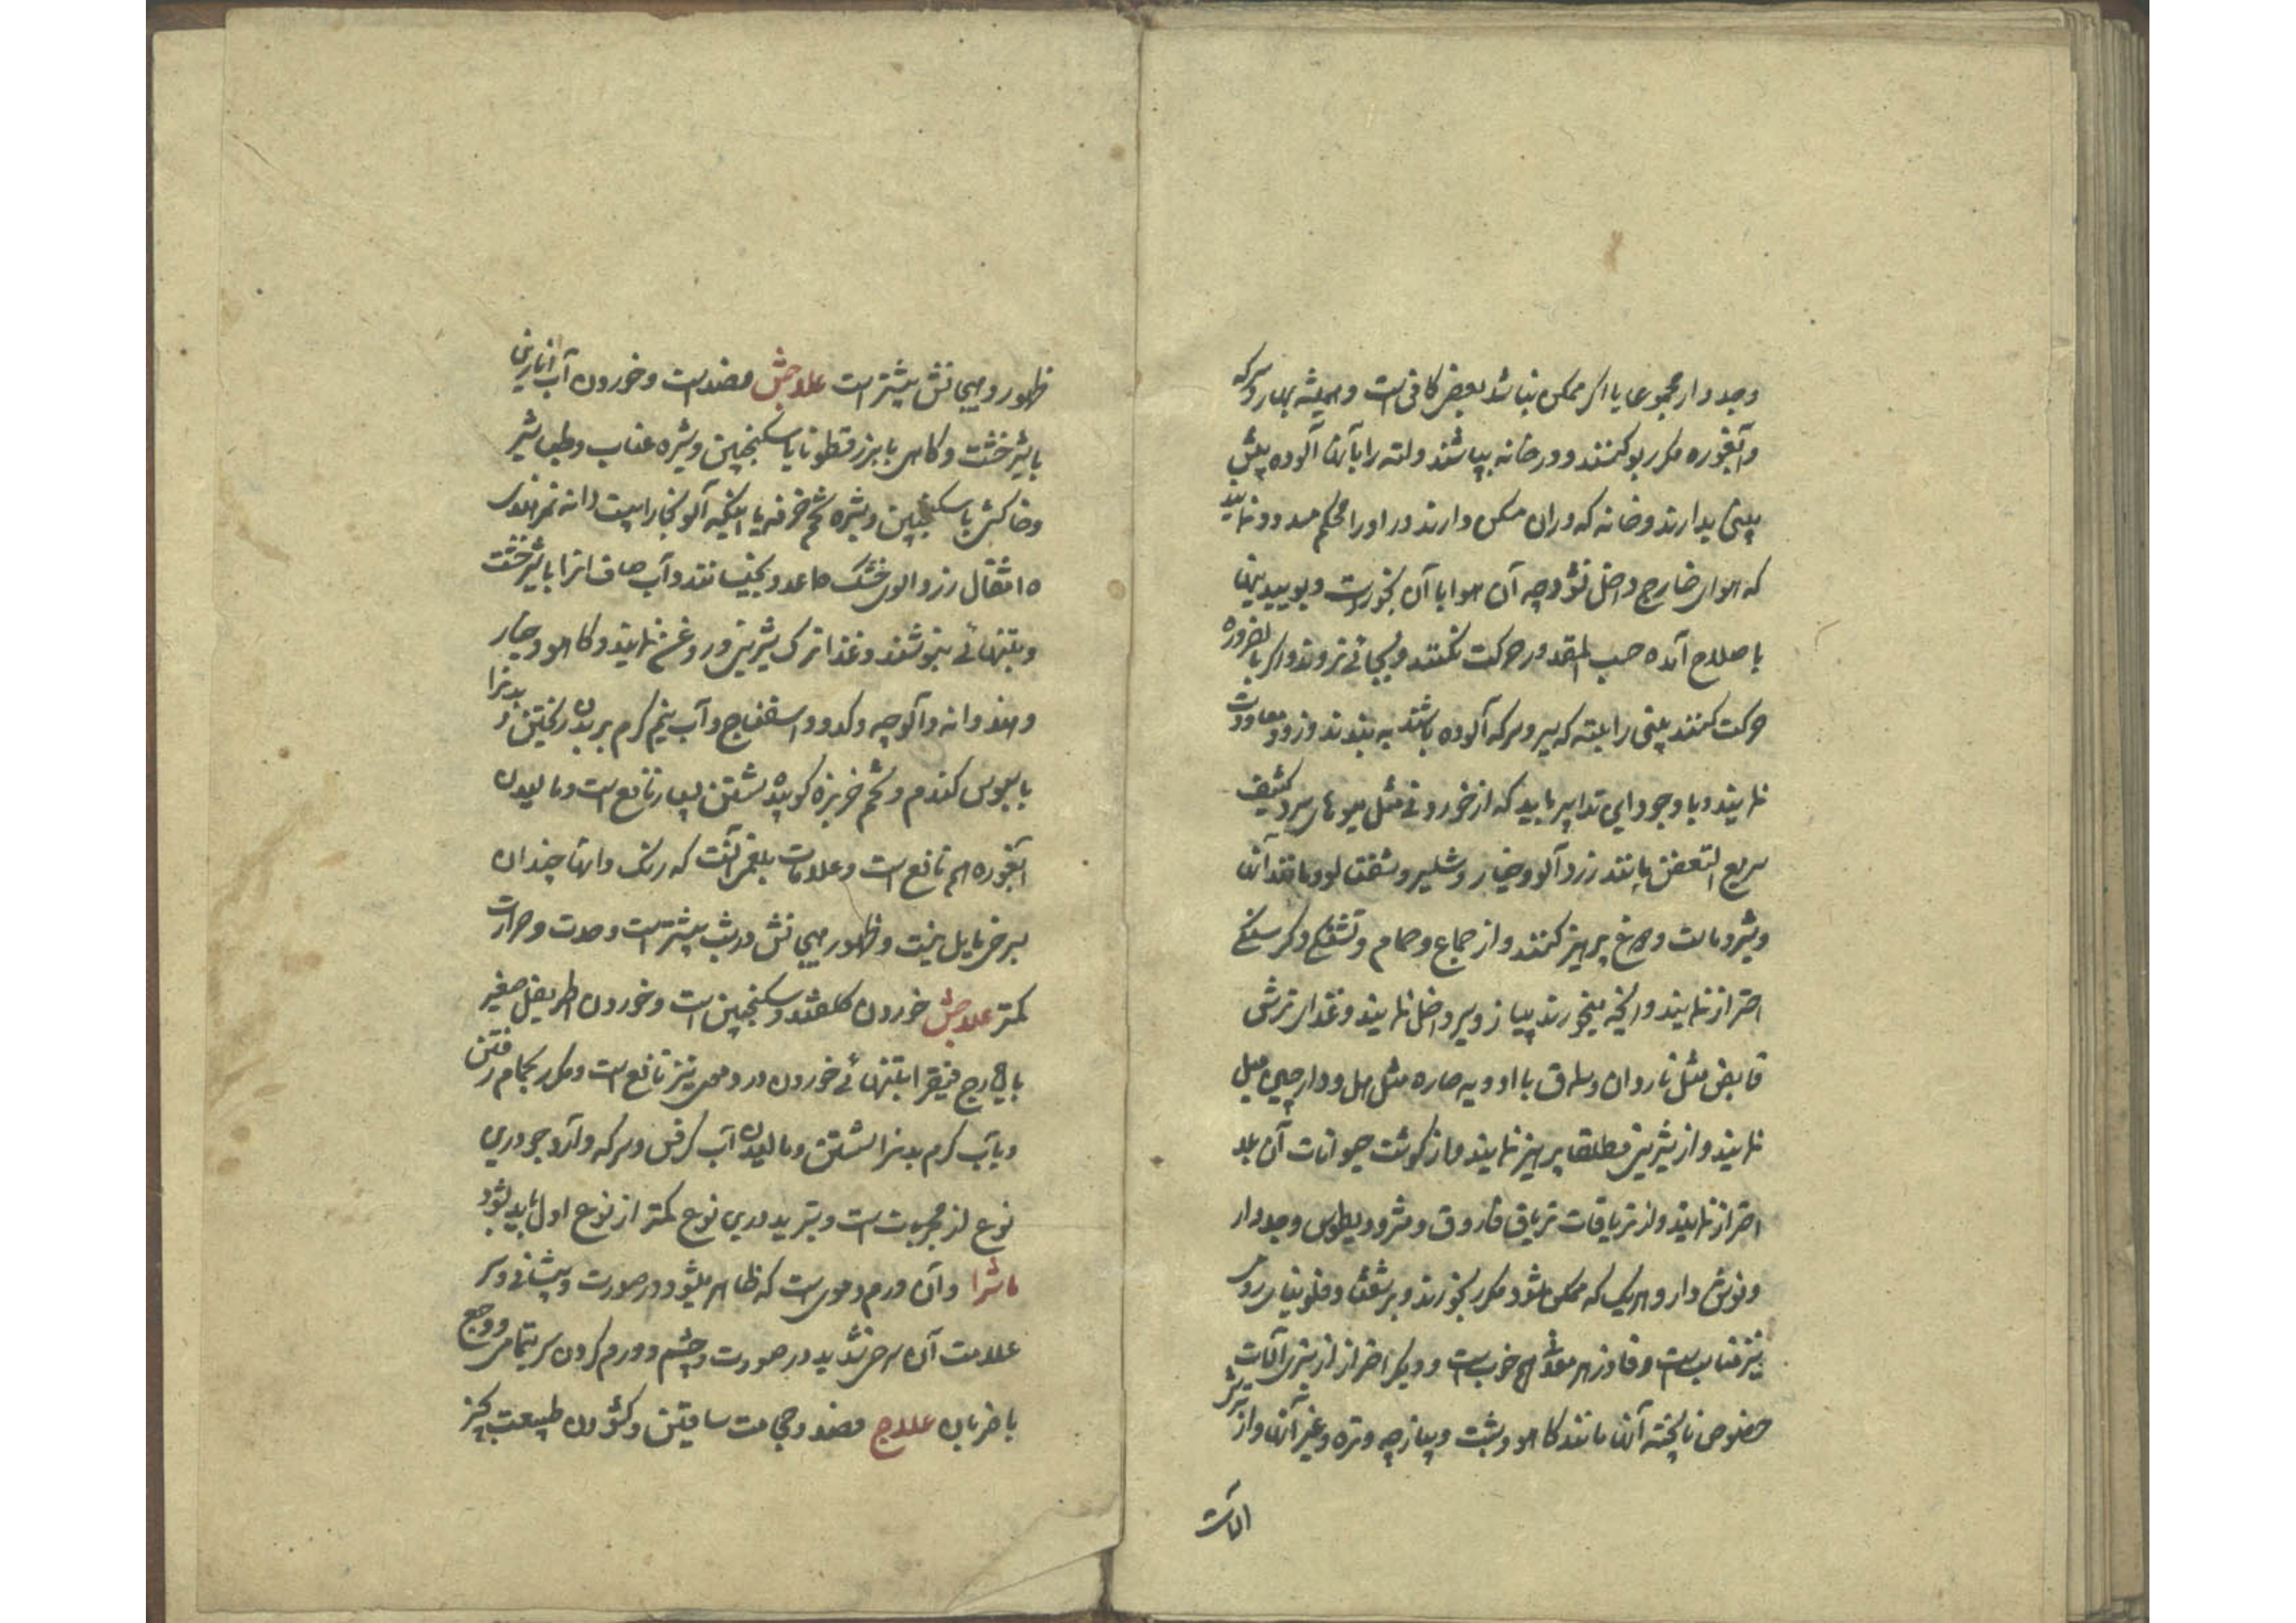 وجدوار مجموع یا اگر ممکن نباشد بعض کافی است و همیشه بهار و سرکه
و آبغوره مکرر بو کنند و در خانه بپاشند و لته را با آنها آلوده پیش
بینی بدارند و خانه که دران مسکن دارند در او را محکم مسدود نمایند
که هوای خارج داخل نشود چه آن هوا با آن بخورست و بوییدنیها
باصلاح آمده حسب المقدور حرکت نکنند و بجائی نروند و اگر بالضروره
حرکت کنند بینی را بلته که بسیر و سرکه آلوده باشد به بندند و زود معاودت
نمایند و با وجود این تدابیر باید که از خوردنی مثل میوهای سرد کثیف
سریع التعفن مانند زردآلو و خیار و شلیر و شفتالو و مانند آنها
و شیر و ماست و دوغ پرهیز کنند و از جماع و حمام و تشنگی و گرسنگی
احتراز نمایند و آنچه میخورند پیاز و سیر داخل نمایند و غذای ترش
قابض مثل ناردان و سماق با ادویه حاره مثل هل و دارچینی میل
نمایند و از شیرینی مطلقا پرهیز نمایند و از گوشت حیوانات آن بلد
احتراز نمایند و از تریاقات تریاق فاروق و مثرودیطوس و جدوار
و نوش دارو هریک که ممکن شود مکرر بخورند و برشعثا و فلونیای رومی
نیز مناسبست و فادزهر معدنی هم خوب است و دیگر احتراز از سبزی آلات
خصوص ناپخته آن مانند کاهو و شبت و پیازچه و تره و غیر آنها و از ترشی
الات
ظهور و هیجانش بیشتر است علاجش فصد است و خوردن آب انارین
با شیرخشت و کاسنی با بزرقطونا یا سکنجبین و شیره عناب و طباشیر
و خاکشی با سکنجبین و شیره تخم خرفه یا اینکه آلو بخارا بیست دانه تمر هندی
۱۵ مثقال زردالوی خشک ۵ عدد بخیسانند و آب صاف انرا با شیرخشت
و بتنهائی بنوشند و غذا ترک شیرینی و روغن نمایند و کاهو و خیار
و هندوانه و آلوچه و کدو و اسفناج و آب نیم گرم بر بدن ریختن و بدنرا
با سبوس گندم و تخم خربزه کوبیده شستن بسیار نافع است و مالیدن
آبغوره هم نافع است و علامات بلغمی آنست که رنگ دانها چندان
بسرخی مایل نیست و ظهور هیجانش در شب بیشتر است و حدت و حرارت
کمتر علاجش خوردن گلقند و سکنجبین است و خوردن اطریفل صغیر
با ایارج فیقرا بتنهائی خوردن در دموی نیز نافع است و مکرر بحمام رفتن
و بآب گرم بدنرا شستن و مالیدن آب کرفس و سرکه و آرد جو درین
نوع از مجربات است و تبرید درین نوع کمتر از نوع اول باید بشود
ماشرا و آن ورم دمویست که ظاهر میشود در صورت و پیشانی و سر
علامت آن سرخی شدید در صورت و چشم و ورم کردن سر بتمامی و وجع
با ضربان علاج فصد و حجامت ساقین و گشودن طبیعت بچیز